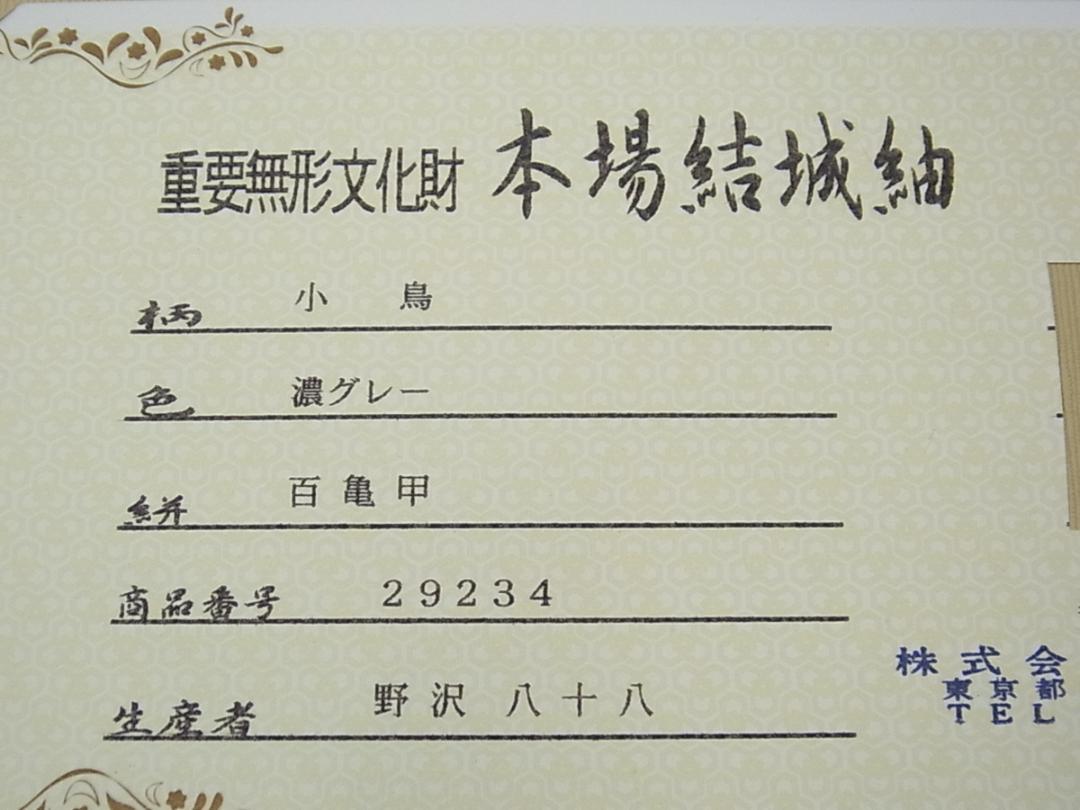 重要無形文化財 本場結城紬
柄 小鳥
色 濃グレー
絣 百亀甲
商品番号 29234
生産者 野沢 八十八
株式会
東京都
TEL